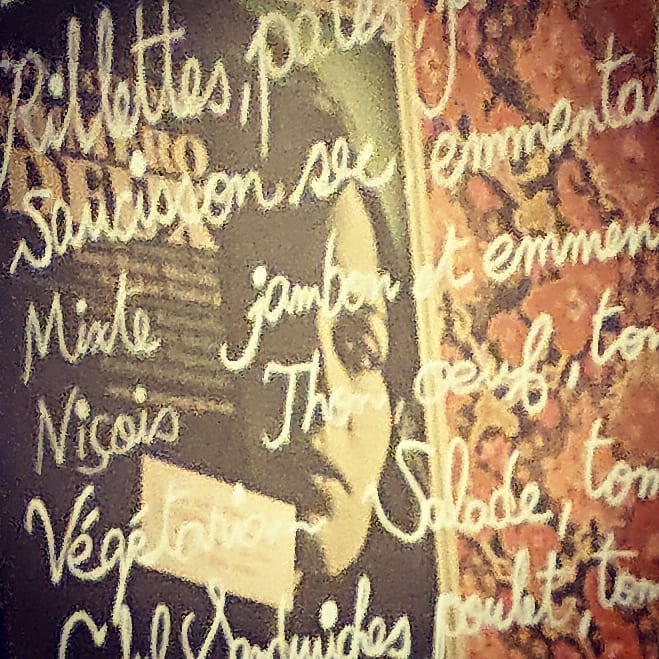 Rillettes, patés,
Saucisson sec emmenta
Mixte jambon et emmen
Niçois Thon, oeuf, tom
Végétarien Salade, tom
Club Sandwides poulet, tom